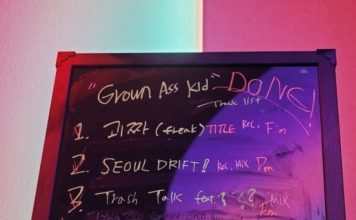 "Grown Ass Kid" DONE!
Track list
1. 괴짜 (freak) TITLE Rec. Fm
2. SEOUL DRIFT! Rec. Mix Dm
3 Trash Talk feat. MIX